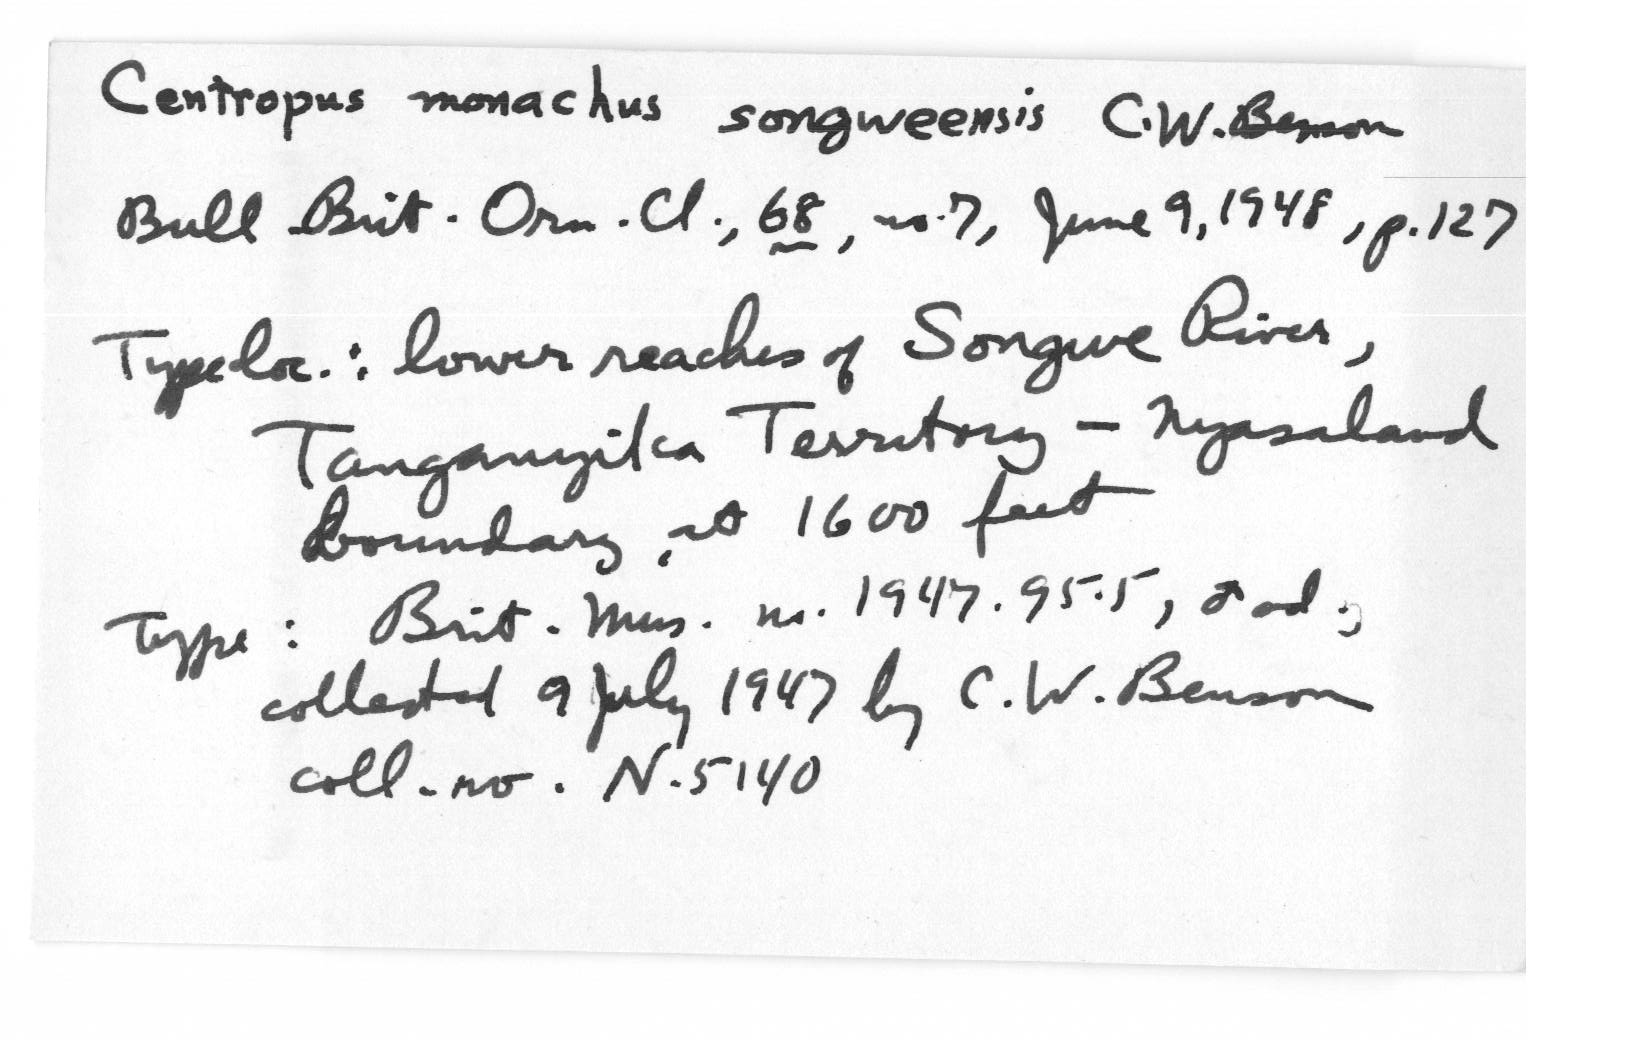 Centropus monachus songweensis C.W. Benson
Bull. Brit. Orn. Cl., 68, no. 7, June 9, 1948, p. 127
Type loc.: lower reaches of Songwe River,
Tanganyika Territory - Nyasaland
boundary, at 1600 feet
Type: Brit. Mus. no. 1947.95.5, ♂ ad.,
collected 9 July 1947 by C.W. Benson
coll. no. N.5140